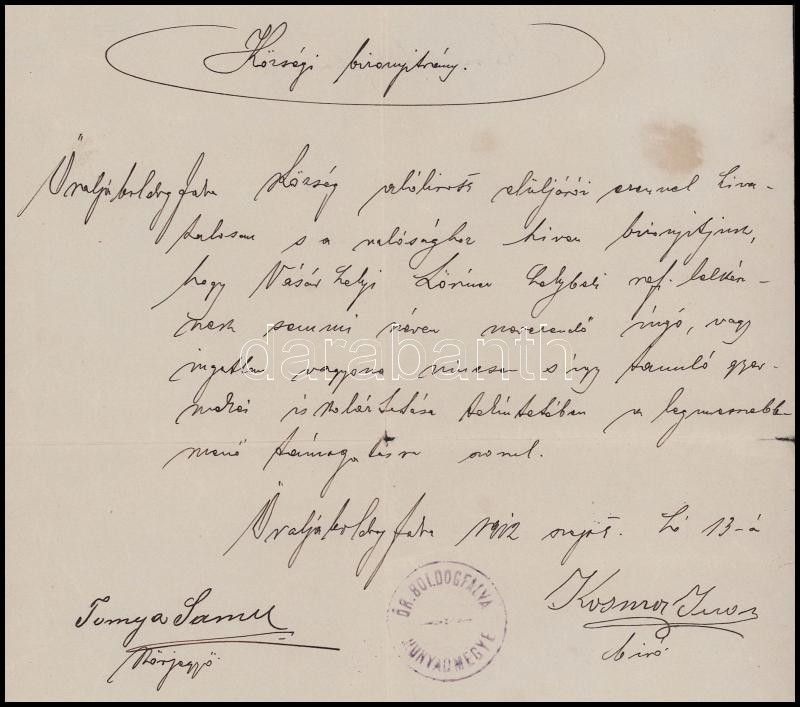 Községi bizonyitvány.
Őraljaboldogfalva Község alólirott elüljárói ezennel hiva-
talosan s a valósághoz hiven bizonyitjuk,
hogy Vásárhelyi Lőrincz helybeli ref. lelkész-
nek semmi néven nevezendő ingó, vagy
ingatlan vagyona nincsen s igy tanuló gyer-
mekei iskoláztatása tekintetében a legmesszebb-
menő támogatásra szorul.
darabanth
Őraljaboldogfalva 1912 szept. hó 13-á
ŐR. BOLDOGFALVA
HUNYADMEGYE
Tornya Samu
Körjegyző
biró